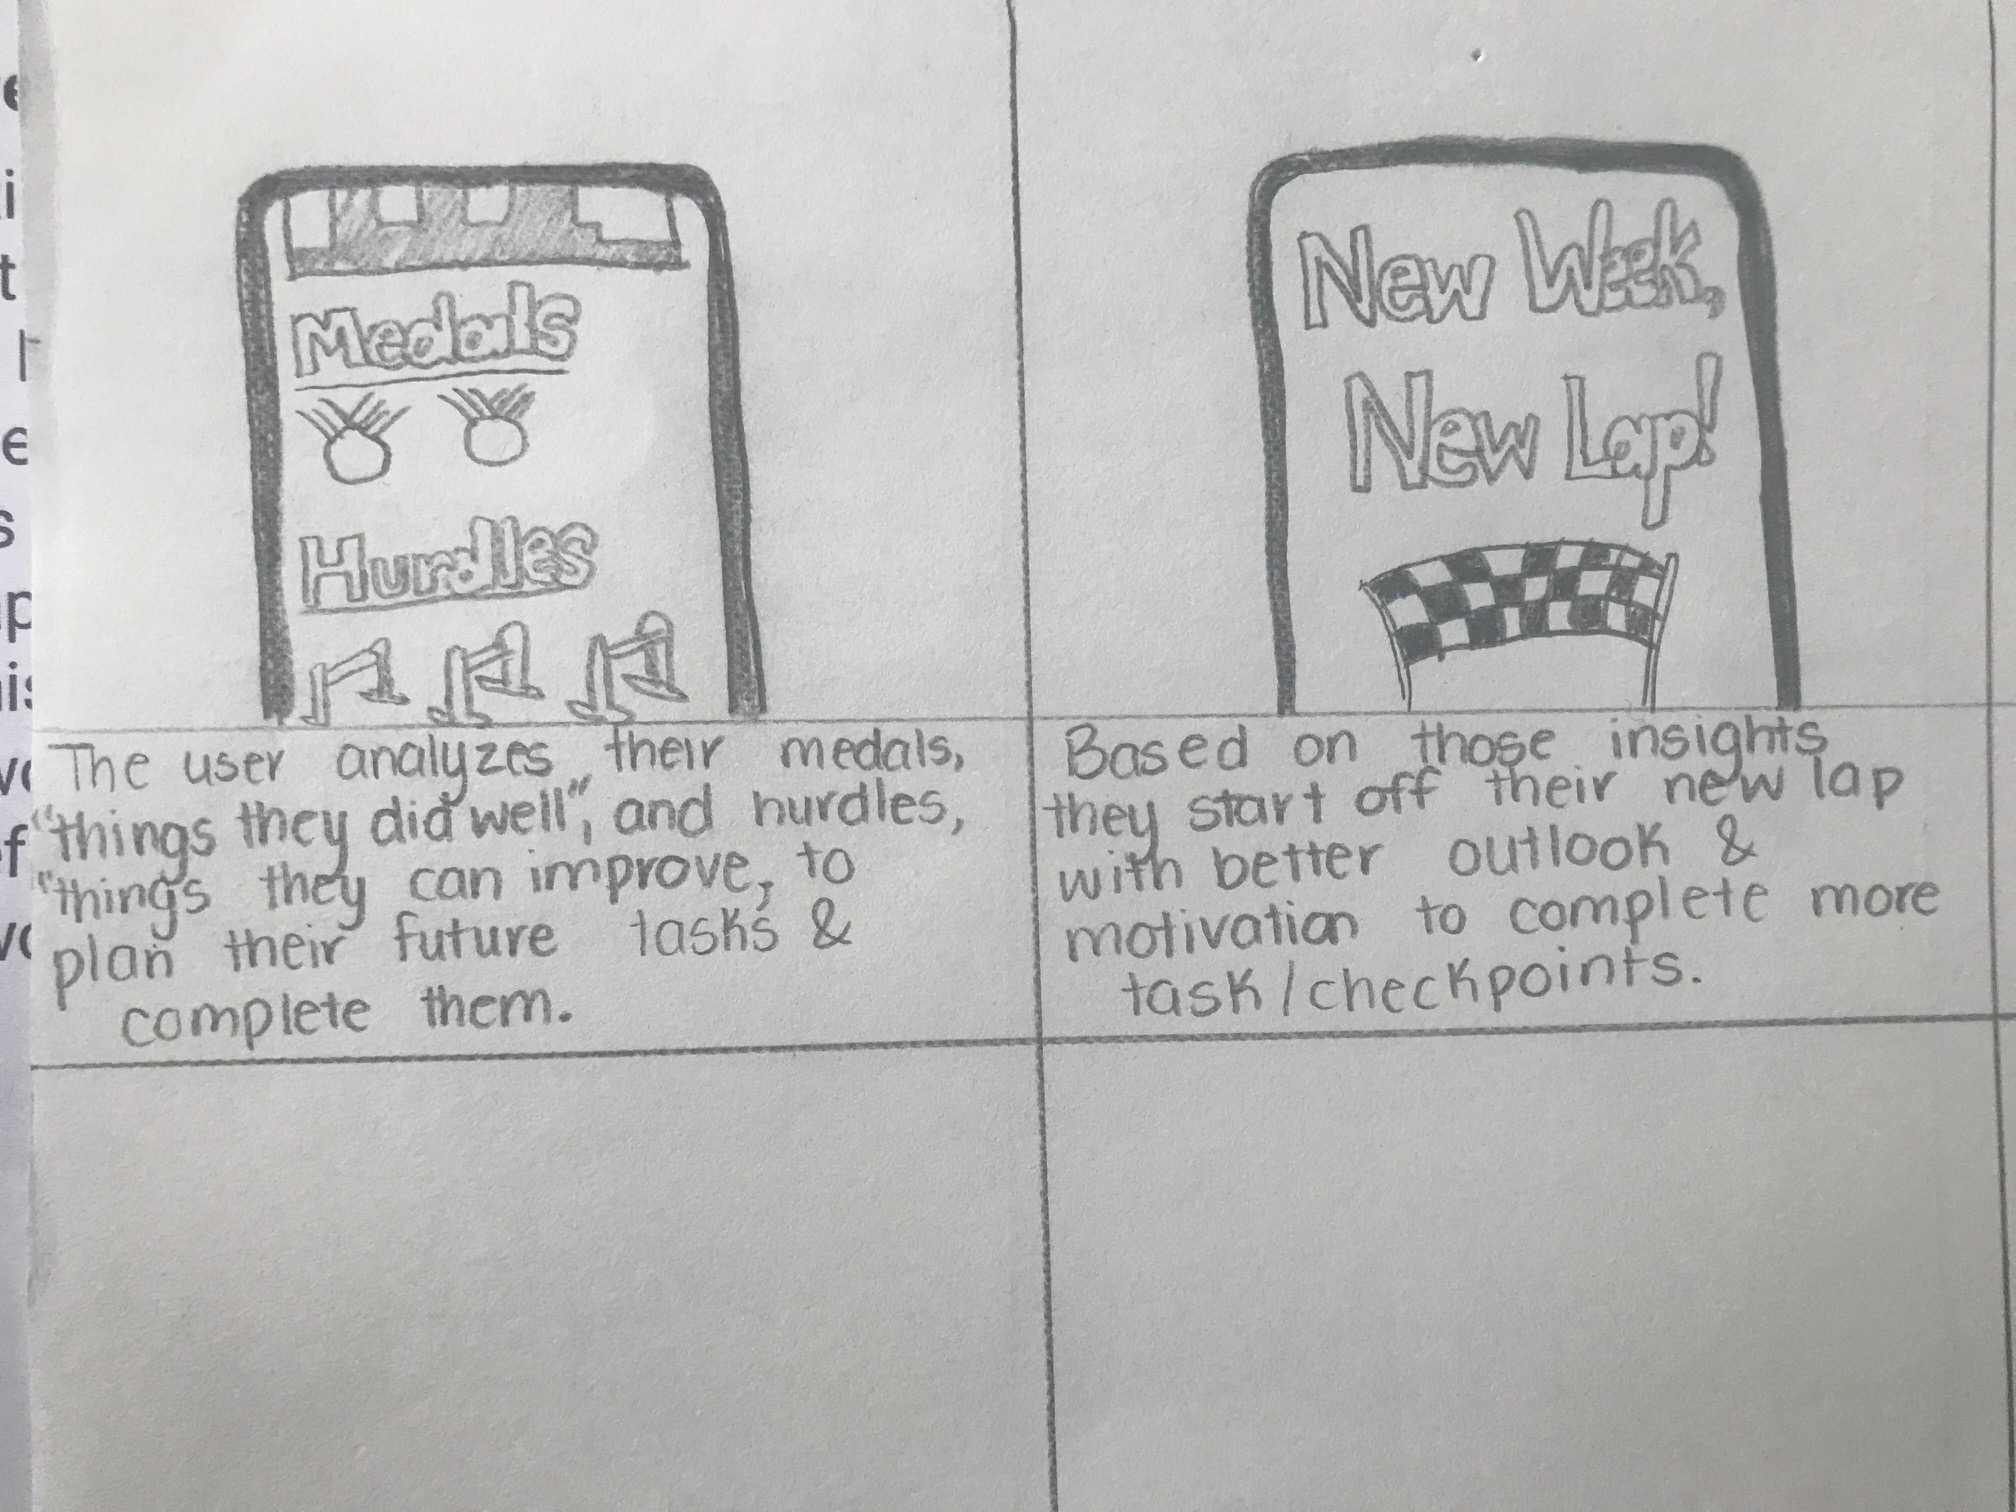 Medals
Hurdles
The user analyzes their medals,
"things they did well", and hurdles,
"things they can improve, to
plan their future tasks &
complete them.
New Week,
New Lap!
Based on those insights
they start off their new lap
with better outlook &
motivation to complete more
task/checkpoints.